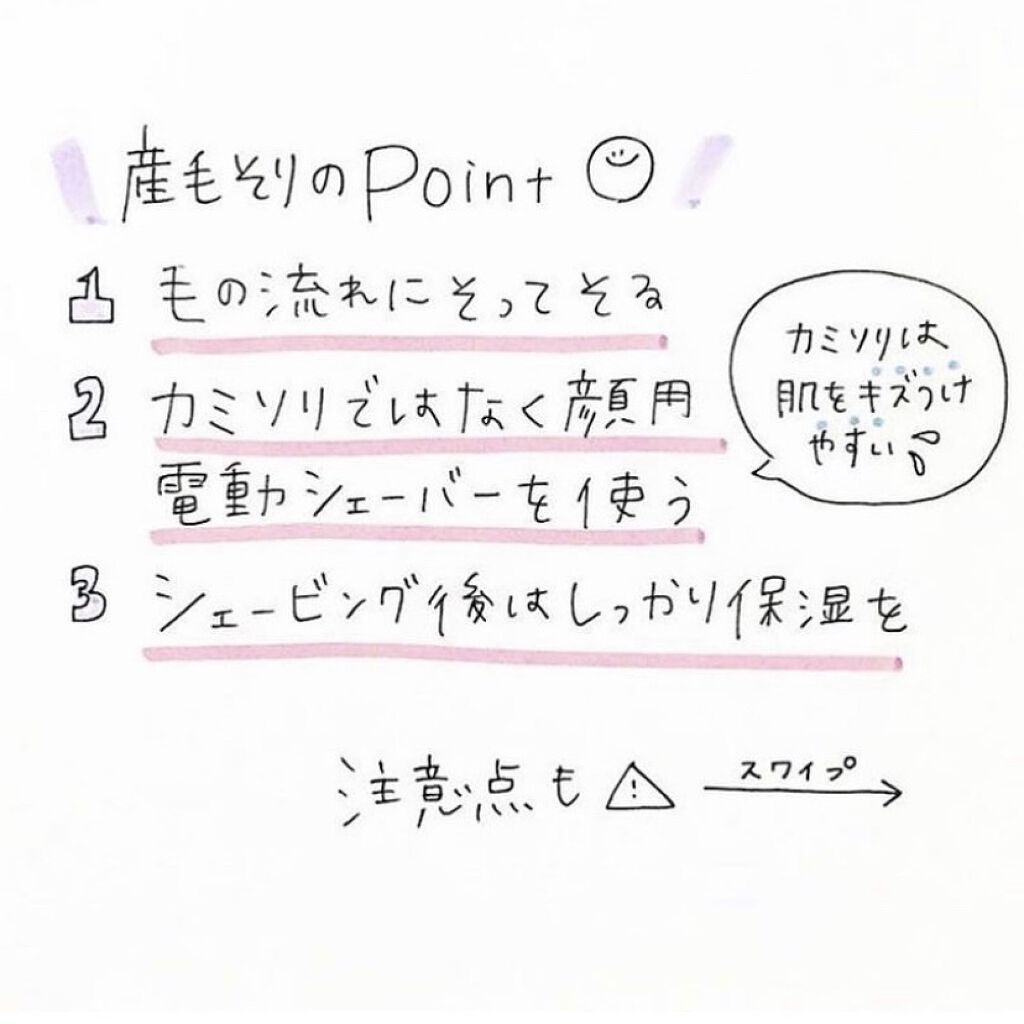 産毛そりのPoint
1 毛の流れにそってそる
2 カミソリではなく顔用
電動シェーバーを使う
カミソリは
肌をキズつけ
やすい
3 シェービング後はしっかり保湿を
注意点も
スワイプ